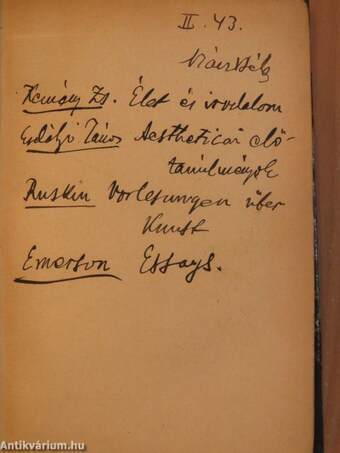 II. 43.
Kemény Zs. Élet és irodalom
Erdélyi János Aestheticai elő-
tanulmányok
Ruskin Vorlesungen über
Kunst
Emerson Essays.
Antikvarium.hu